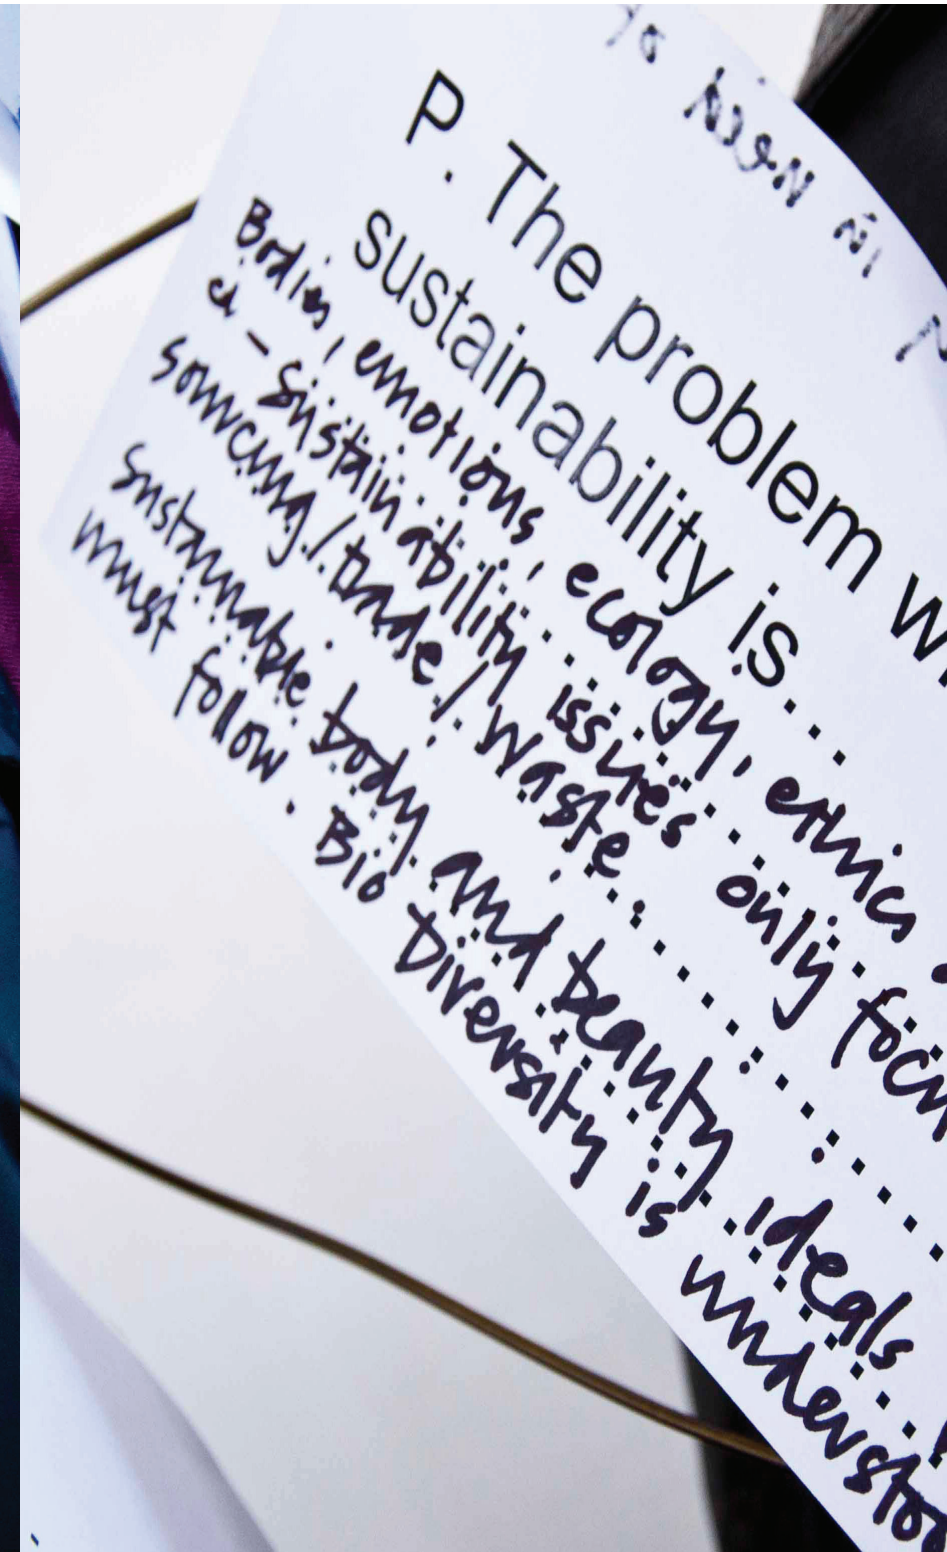 P. The problem w
sustainability is...
Bodies, emotions, ecology, ethics
sustainability issues only focu
sourcing / trade / waste.
Sustainable body and beauty ideals
must follow. Bio Diversity is understoo